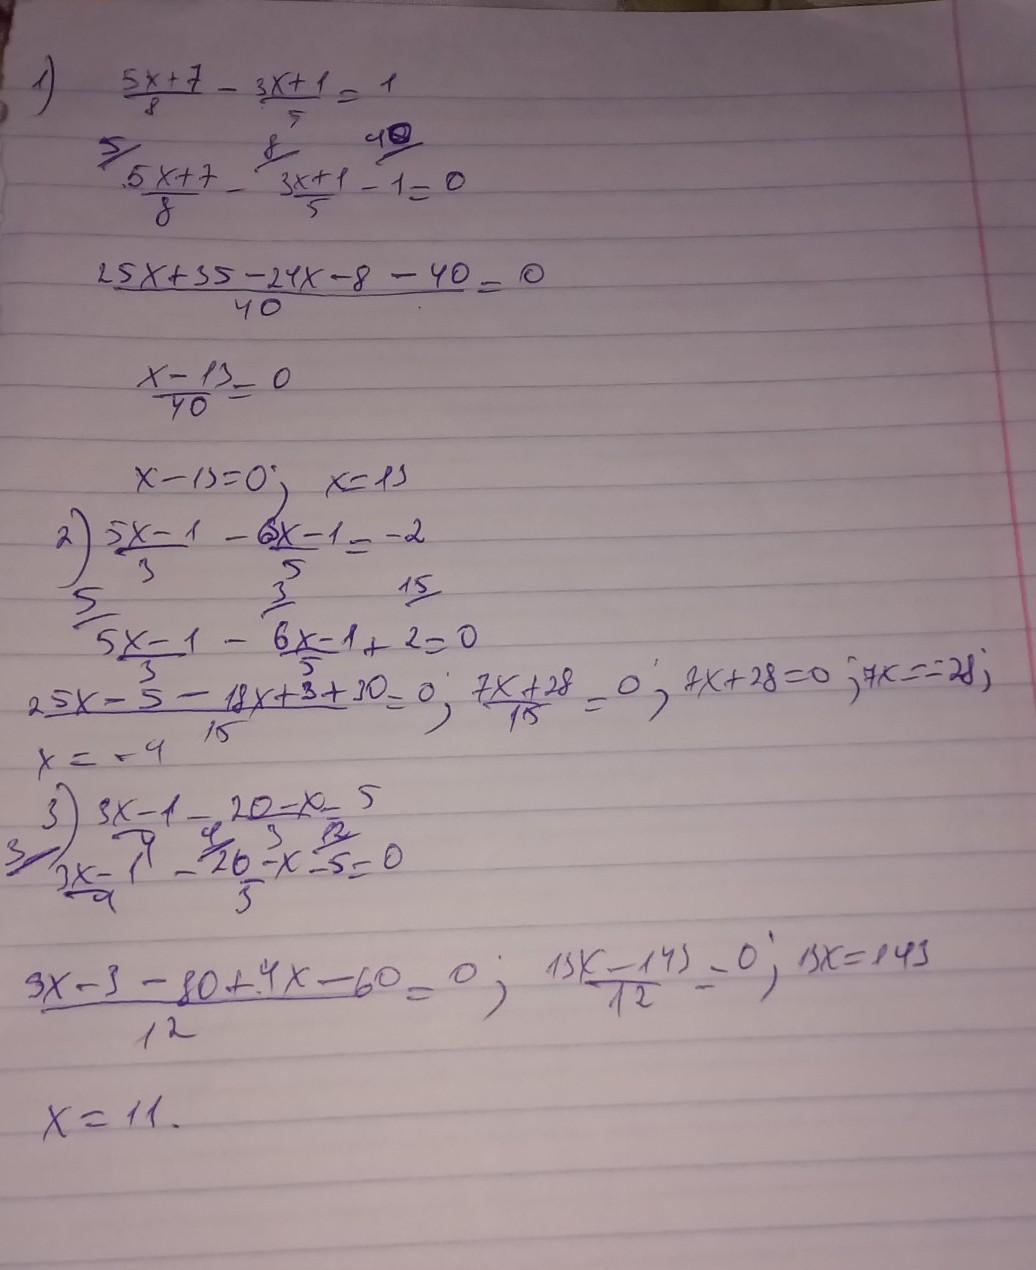 1) (5x+7)/8 - (3x+1)/5 = 1
5/ 8/ 40/
(5x+7)/8 - (3x+1)/5 - 1 = 0
(25x+35-24x-8-40)/40 = 0
(x-13)/40 = 0
x-13=0; x=13
2) (5x-1)/3 - (6x-1)/5 = -2
5/ 3/ 15/
(5x-1)/3 - (6x-1)/5 + 2 = 0
(25x-5-18x+3+30)/15 = 0; (7x+28)/15 = 0; 7x+28=0; 7x=-28;
x = -4
3) (3x-1)/4 - (20-x)/3 = 5
3/ 4/ 12/
(3x-1)/4 - (20-x)/3 - 5 = 0
(9x-3-80+4x-60)/12 = 0; (13x-143)/12 = 0; 13x=143
x = 11.